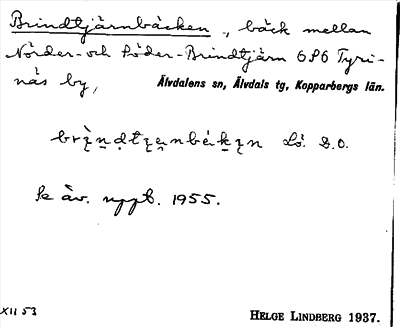 Brindtjärnbäcken , bäck mellan
Norder- och Söder-Brindtjärn OSO Tyri-
näs by, Älvdalens sn, Älvdals tg, Kopparbergs län.
Lå. S.O.
Se äv. uppt. 1955.
XII 53
HELGE LINDBERG 1937.